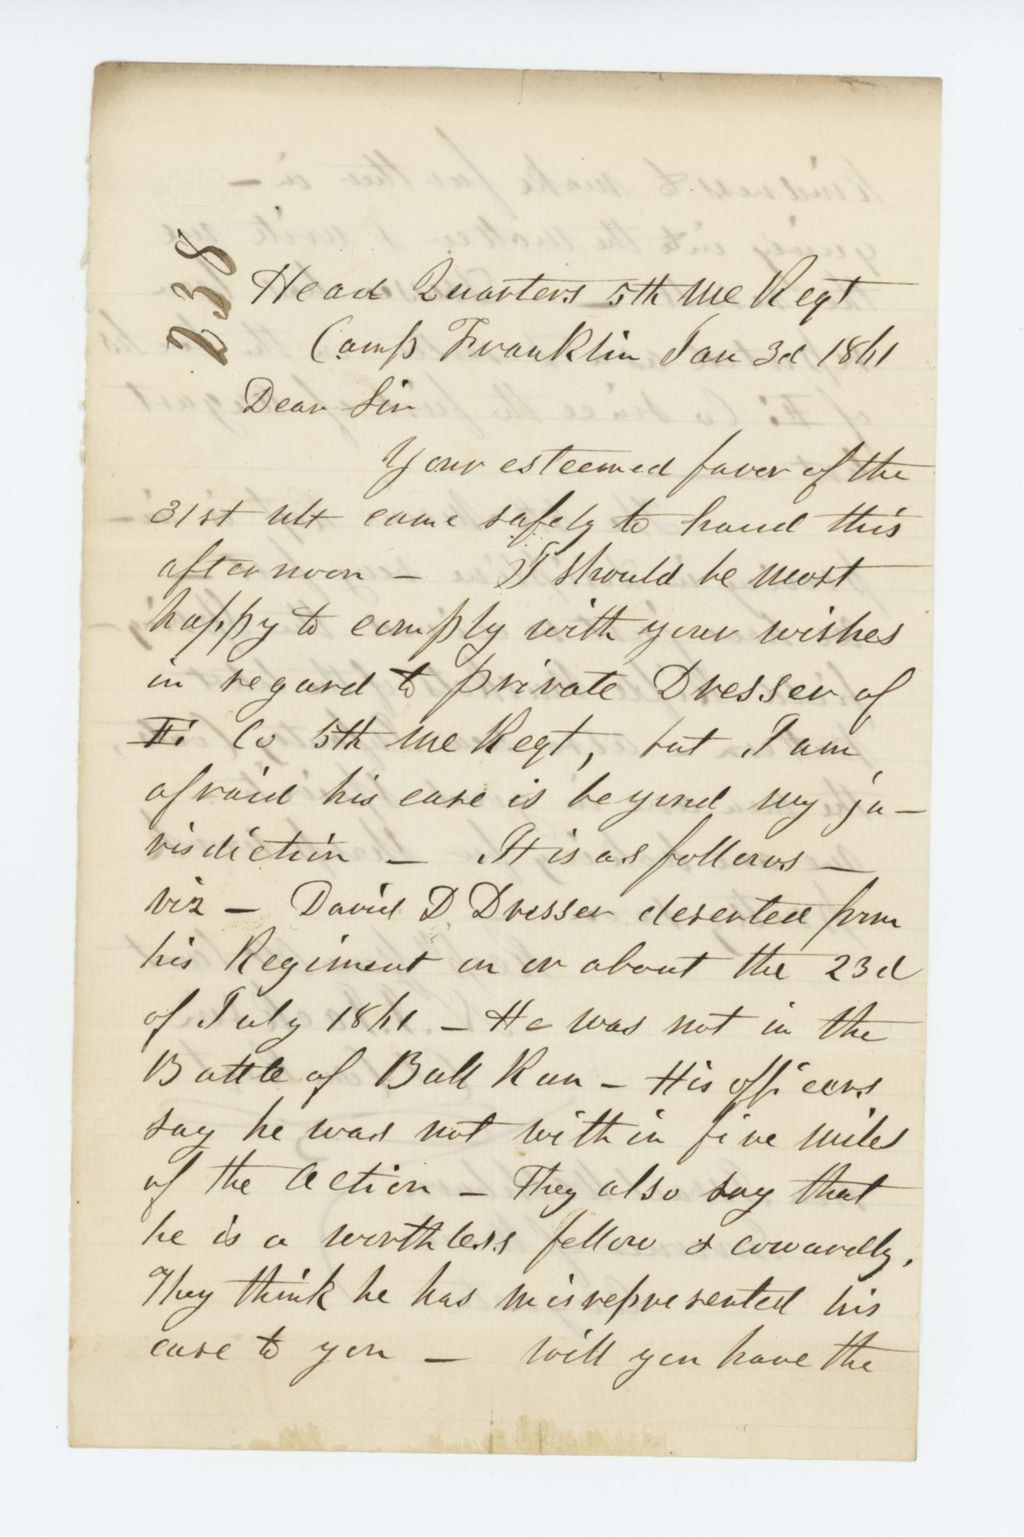 238
Head Quarters 5th Me Regt
Camp Franklin Jan 3d 1861
Dear Sir
Your esteemed favor of the
31st ult came safely to hand this
afternoon – I should be most
happy to comply with your wishes
in regard to private Dresser of
Co 5th Me Regt, but I am
afraid his case is beyond my ju-
risdiction – It is as follows –
viz – David D Dresser deserted from
his Regiment on or about the 23d
of July 1861 – He was not in the
Battle of Bull Run – His officers
say he was not within five miles
of the action – They also say that
he is a worthless fellow & cowardly.
They think he has misrepresented his
case to you – Will you have the